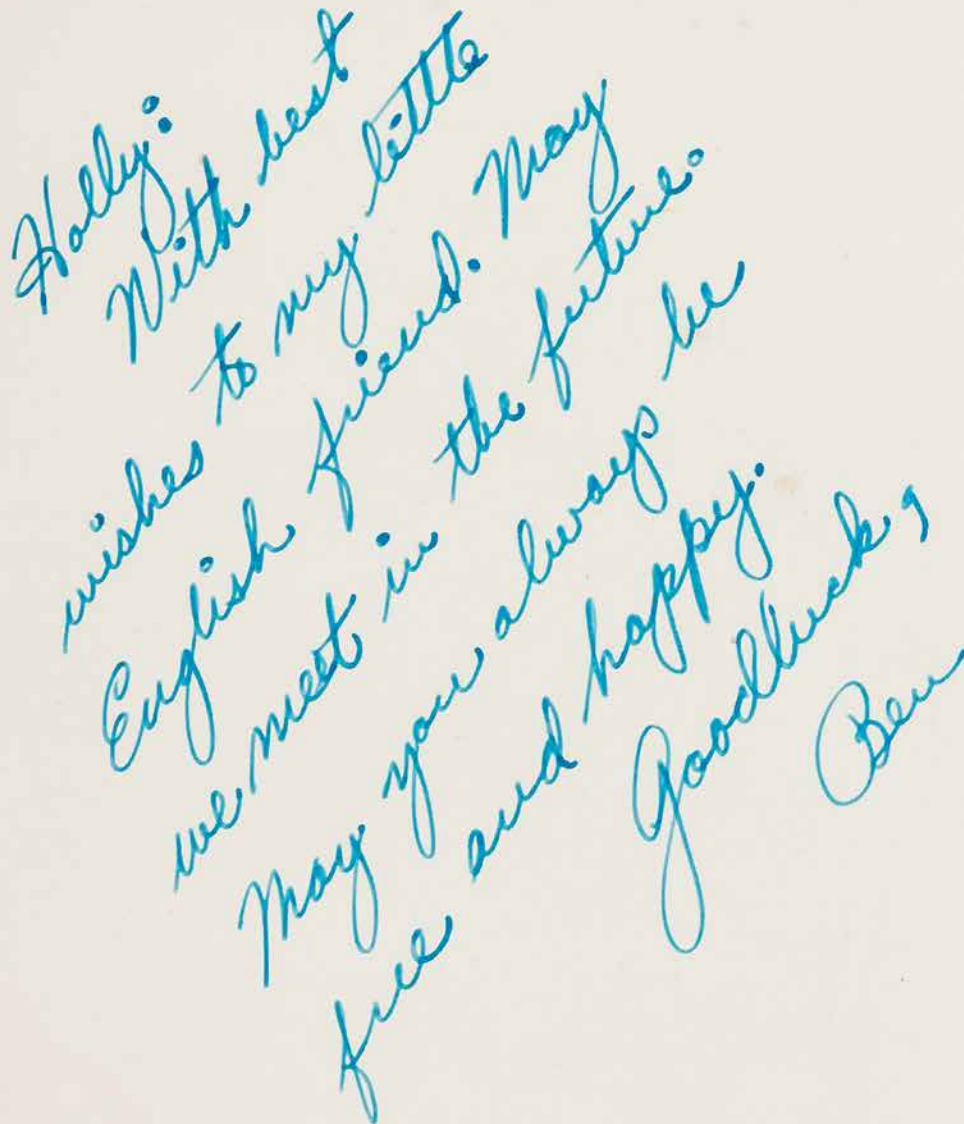 Holly:
With best
wishes to my little
English friend. May
we meet in the future.
May you always be
free and happy.
Goodluck,
Ben